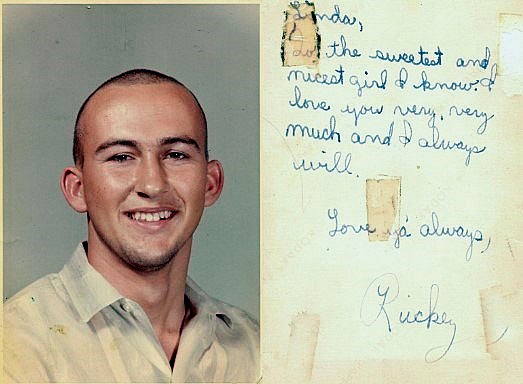 Linda,
To the sweetest and
nicest girl I know. I
love you very, very
much and I always
will.
Love ya' always,
Rickey